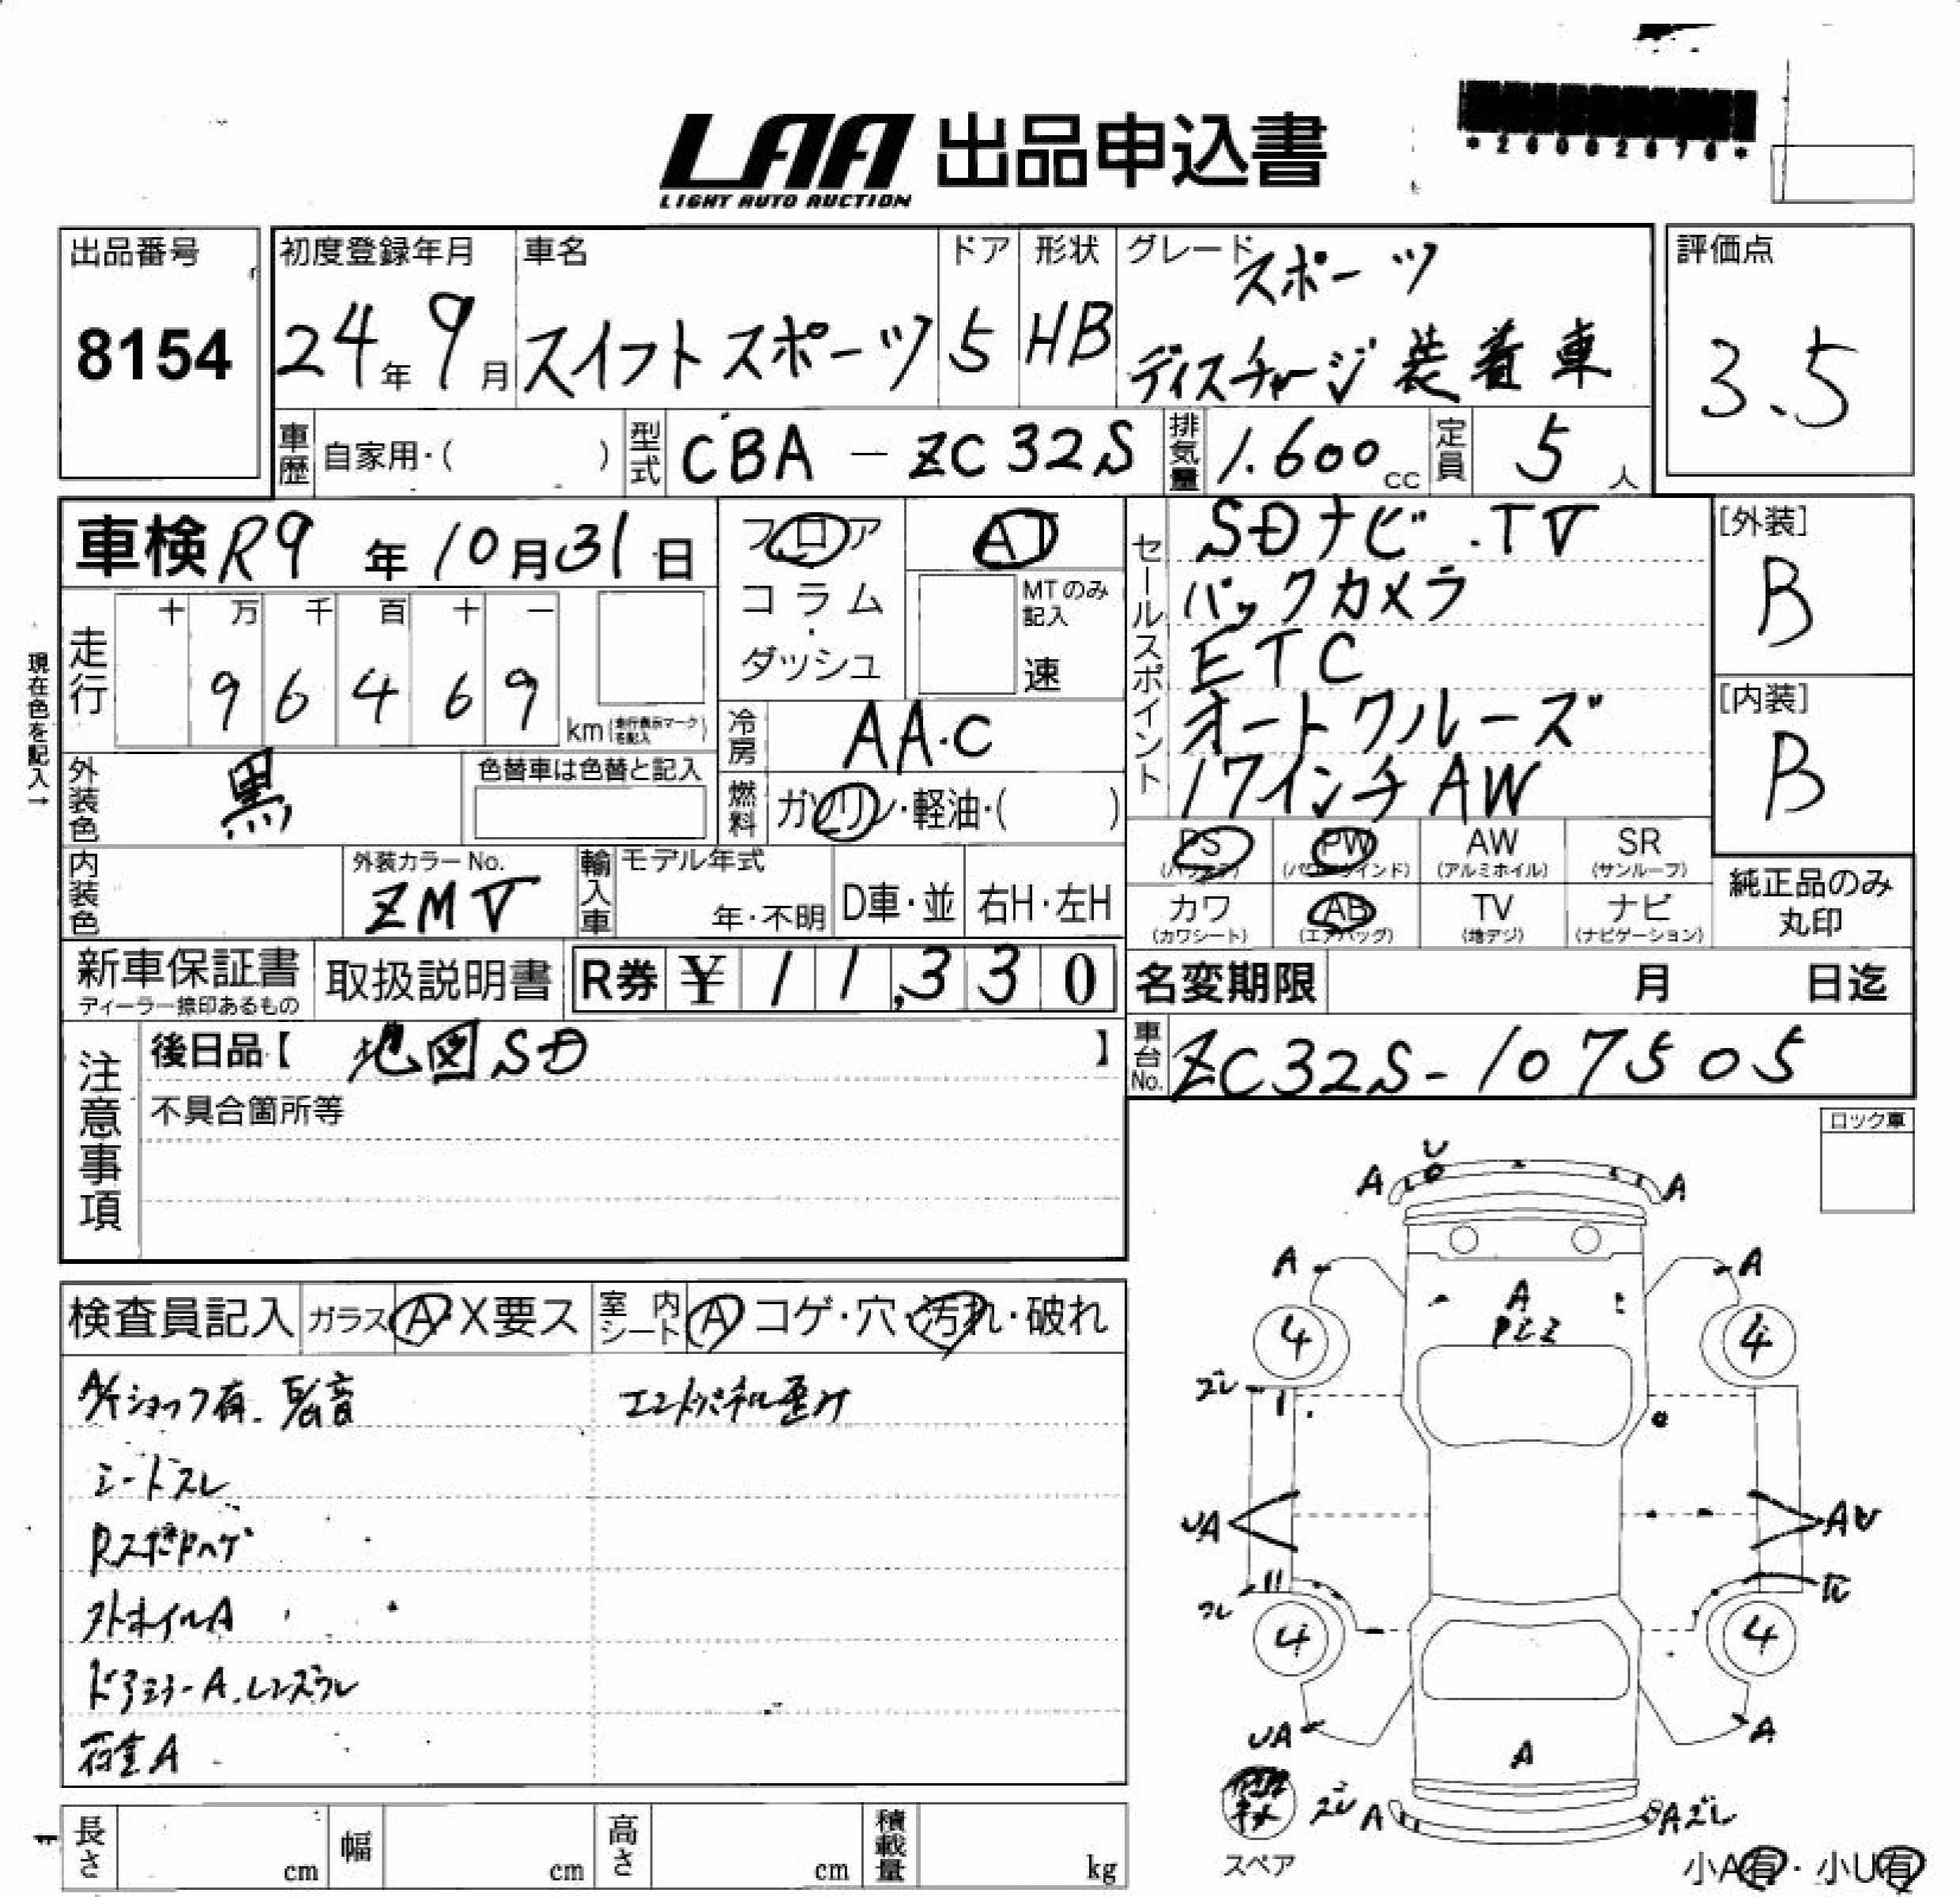 LAA 出品申込書
LIGHT AUTO AUCTION
出品番号 初度登録年月 車名 ドア 形状 グレード 評価点
スポーツ
8154 24年 9月 スイフトスポーツ 5 HB ディスチャージ装着車 3.5
車歴 自家用・( ) 型式 CBA-ZC32S 排気量 1.600cc 定員 5人
車検 R9年 10月 31日
フロア AT
コラム・ダッシュ
MTのみ記入
速
セールスポイント
SDナビ.TV
バックカメラ
ETC
オートクルーズ
17インチAW
[外装]
B
[内装]
B
現在色を記入→
走行 十 万 千 百 十 一
9 6 4 6 9 km(走行表示マークを記入)
冷房 AA.C
外装色 黒 色替車は色替と記入
燃料 ガソリン・軽油・( )
PS PW AW SR
(パワステ) (パワーウインド) (アルミホイル) (サンルーフ)
カワ AB TV ナビ
(カワシート) (エアバッグ) (地デジ) (ナビゲーション)
純正品のみ
丸印
内装色 外装カラーNo. ZMV
輸入車 モデル年式 年・不明 D車・並 右H・左H
新車保証書 取扱説明書 R券 ¥11,330
ディーラー捺印あるもの
名変期限 月 日迄
車台No. ZC32S-107505
注意事項
後日品【 地図SD 】
不具合箇所等
ロック車
検査員記入 ガラス A・X要ス 室内シート A コゲ・穴・汚れ・破れ
A/Tショック有. 異音 エンドパネル歪み
シートスレ
Rスポイラーハゲ
アルミホイルA
ドアミラーA.レンズズレ
荷室A
U
A A
A A
A
4 4
ズレ
UA AU
ズレ
4 4
UA A
A
ズレ A Aズレ
スペア
小A有・小U有
長さ cm 幅 cm 高さ cm 積載量 kg